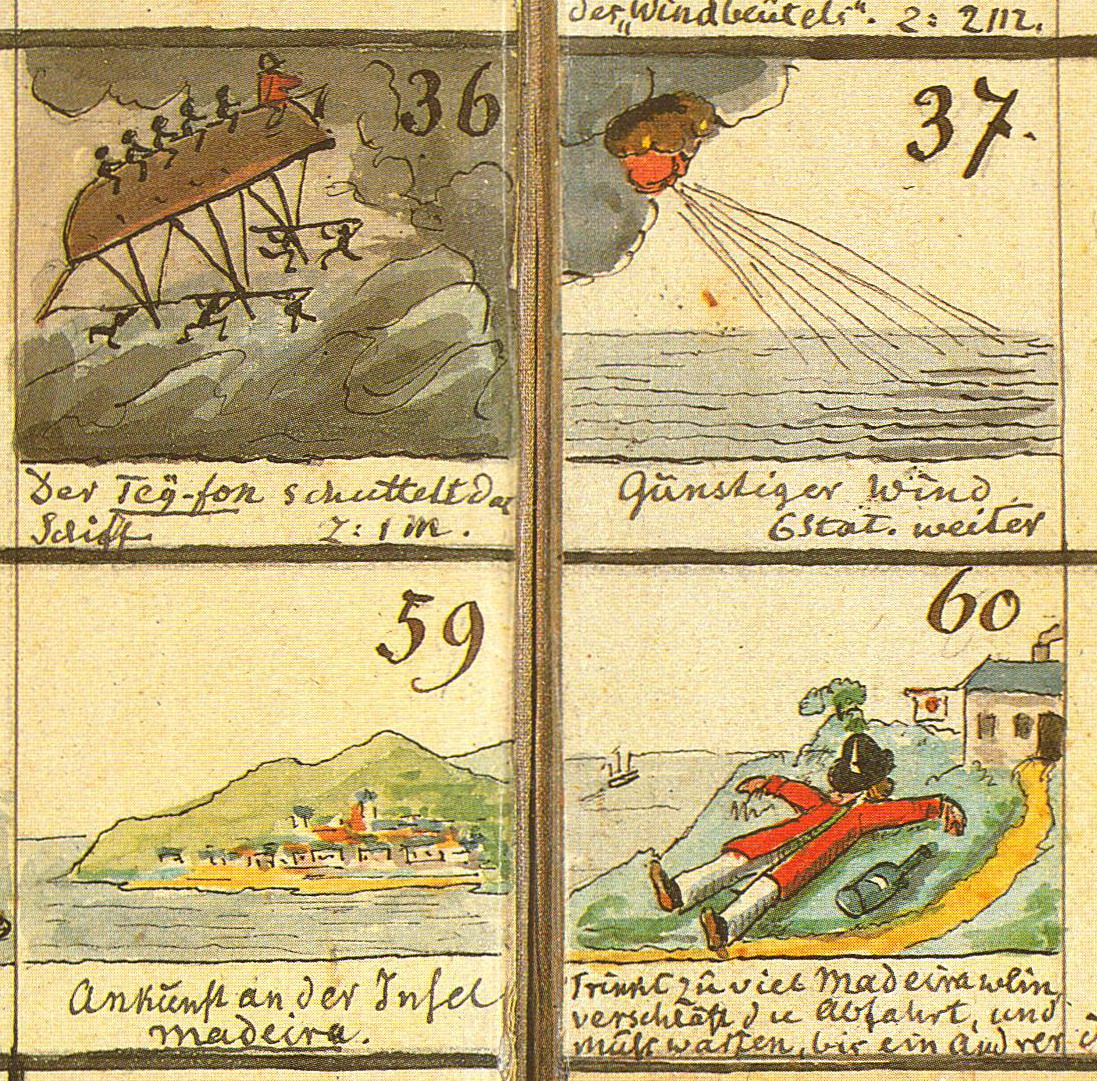 des "Windbeütels". Z: 2 M.
36
37.
Der Teÿ-fon schüttelt das
Schiff. Z: 1 M.
Günstiger Wind,
6 Stat. weiter
59
60
Ankünft an der Insel
Madeira.
Trinkt zü viel Madeirawein,
verschläft die Abfahrt, und
müß warten, bis ein andrer